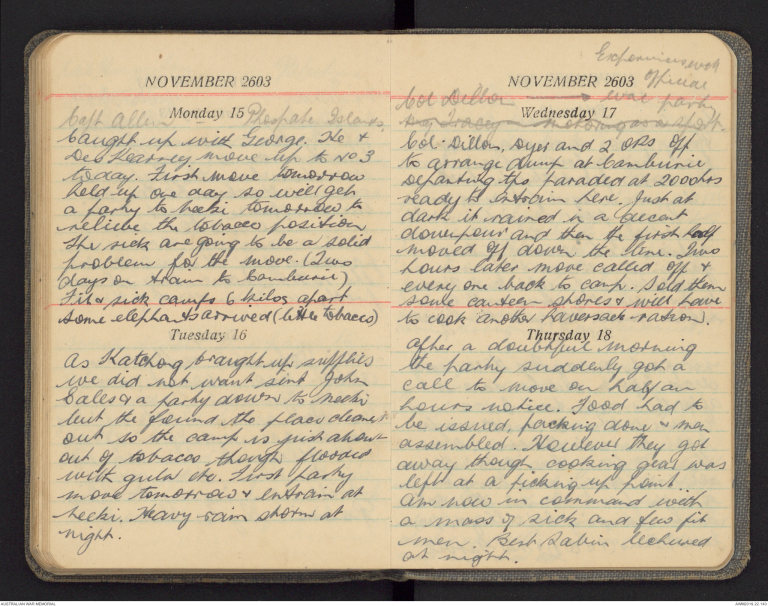 NOVEMBER 2603
Capt Allen Phospate Islands.
Monday 15
Caught up with George. He &
Des Kearney move up to No 3
today. First move tomorrow
held up one day so will get
a party to Neeki tomorrow to
relieve the tobacco position
The sick are going to be a solid
problem for the move. (Two
days on train to Camburie)
Fit & sick camps 6 kilos apart
Some elephants arrived (little tobacco)
Tuesday 16
As Katchong braught up supplies
we did not want sent John
& a party down to Neeki
but the found the place cleaned
out so the camp is just about
out of tobacco though flooded
with gula etc. First party
move tomorrow & entrain at
Neeki. Heavy rain storm at
night.
Experiences with
NOVEMBER 2603
Official
Col Dillon war party
Wednesday 17
Col. Dillon, Dyer and 2 ORs off
to arrange dump at Camburie
Departing tps paraded at 2000hrs
ready to entrain here. Just at
dark it rained in a decent
downpour and then the first half
moved off down the line. Two
hours later move called off &
every one back to camp. Sold them
some canteen stores & will have
to cook another haversack ration.
Thursday 18
After a doubtful morning
the party suddenly got a
call to move on half an
hours notice. Food had to
be issued, packing done & men
assembled. However they got
away though cooking gear was
left at a picking up point.
Am now in command with
a mass of sick and few fit
men. Bert Sabin lectured
at night.
AUSTRALIAN WAR MEMORIAL